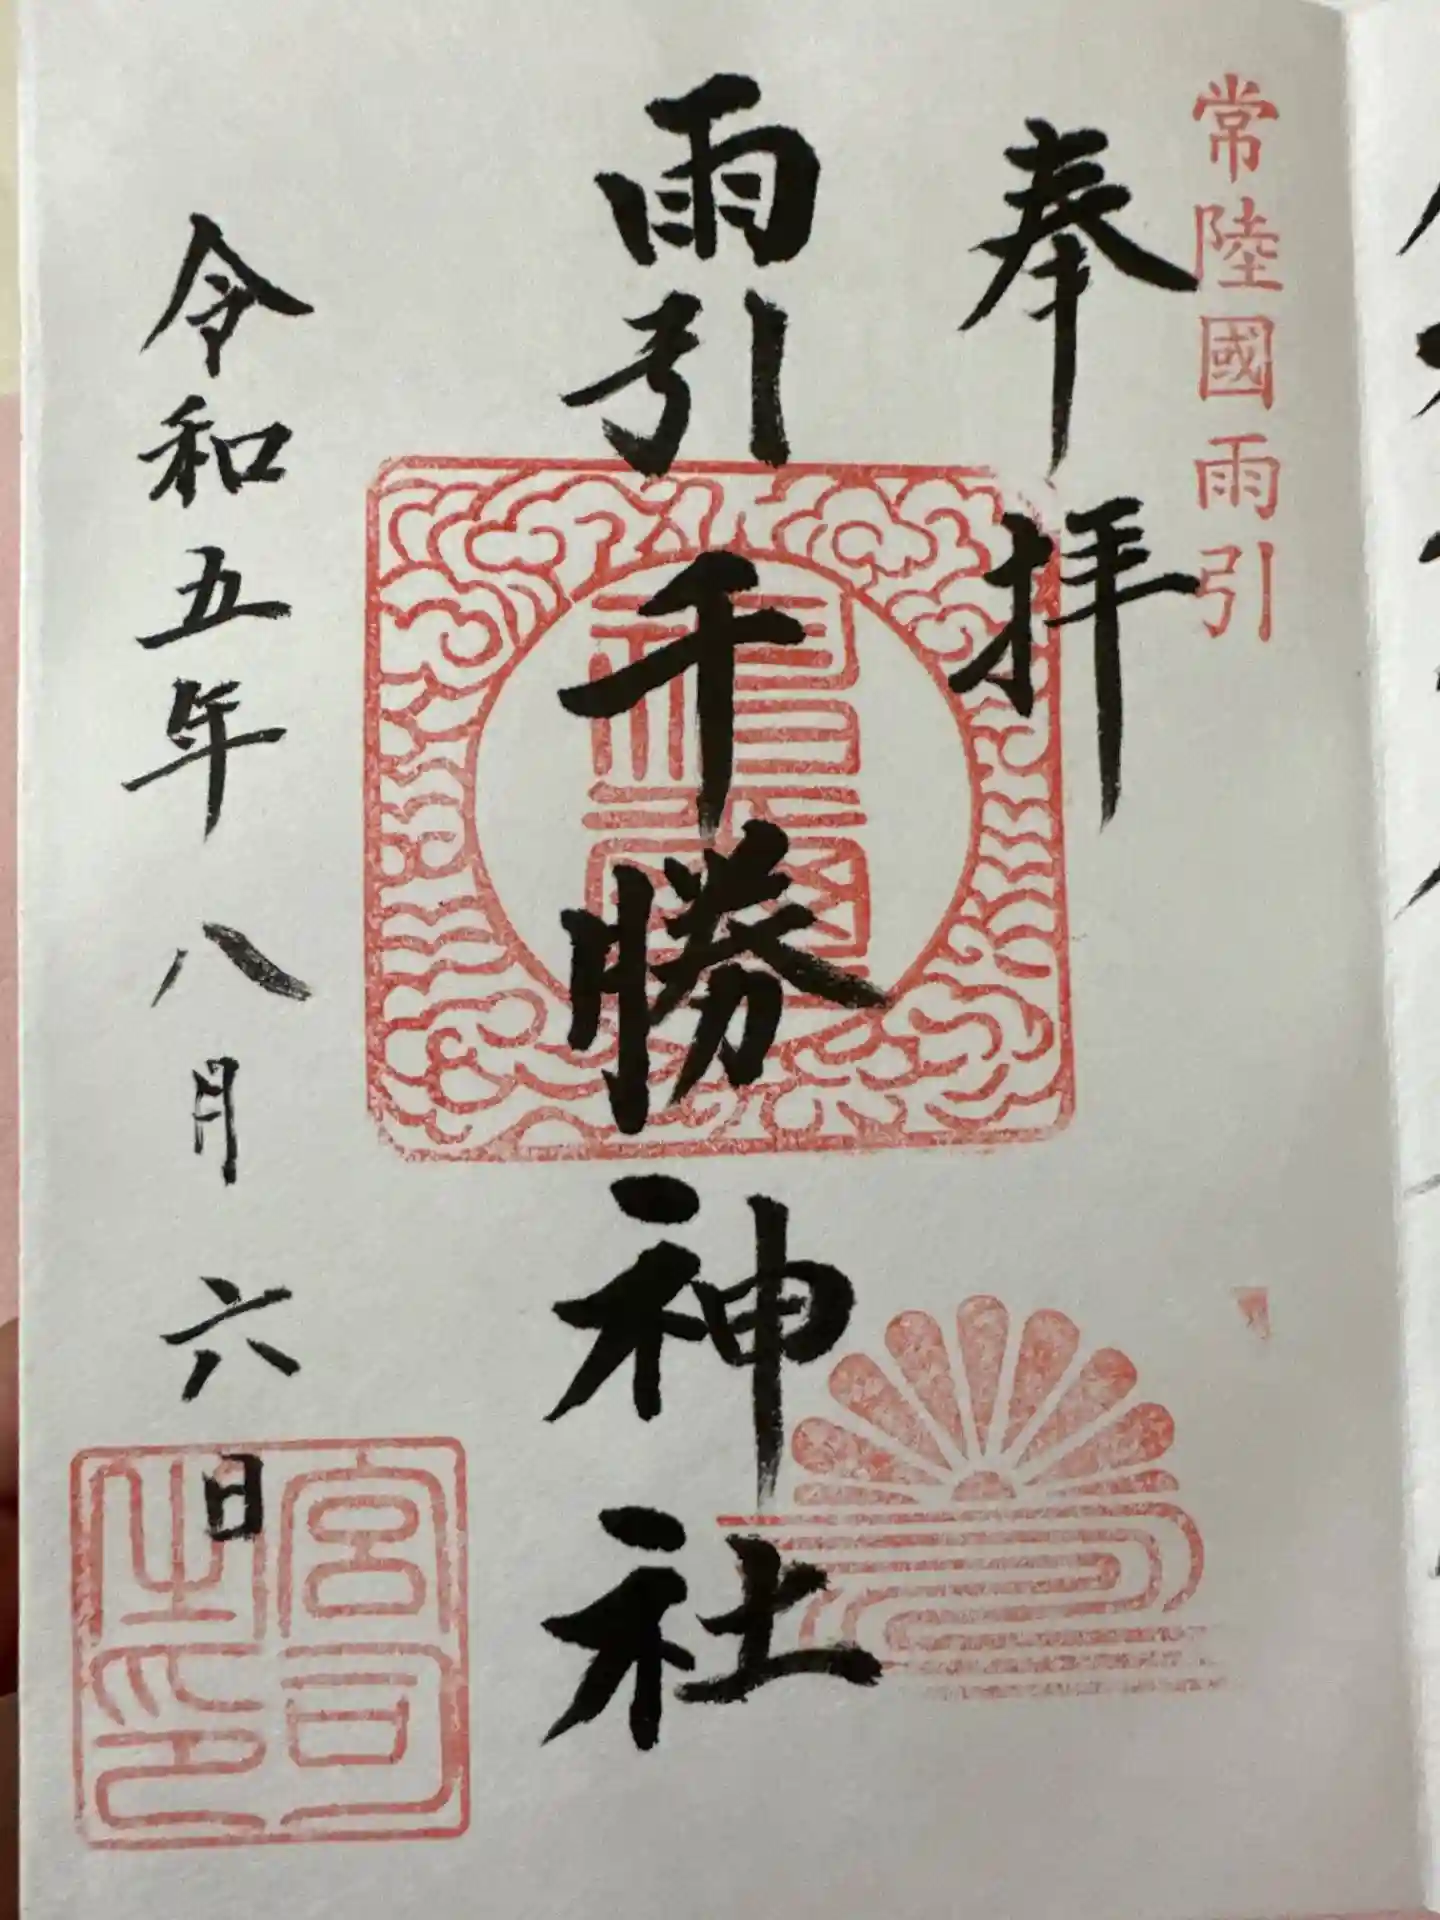 常陸國雨引
奉拝
雨引千勝神社
令和五年八月六日
宮司之印